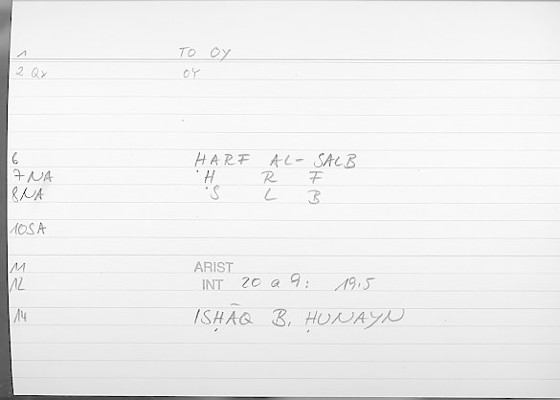 1 TO OY
2 Qv OY
6 HARF AL-SALB
7 NA ·H R F
8 NA ·S L B
10 SA
11 ARIST
12 INT 20 a 9: 19.5
14 ISḤĀQ B. ḤUNAYN